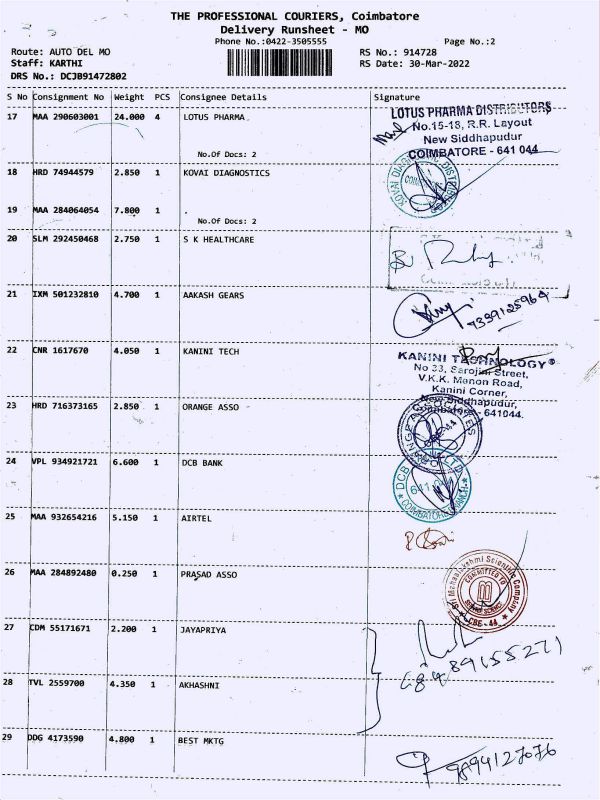 THE PROFESSIONAL COURIERS, Coimbatore
Delivery Runsheet - MO
Phone No.:0422-3505555 Page No.:2
Route: AUTO DEL MO RS No.: 914728
Staff: KARTHI RS Date: 30-Mar-2022
DRS No.: DCJB91472802
S No Consignment No Weight PCS Consignee Details Signature
17 MAA 290603001 24.000 4 LOTUS PHARMA
LOTUS PHARMA DISTRIBUTORS
No.15-18, R.R. Layout
New Siddhapudur
COIMBATORE - 641 044
No.Of Docs: 2
18 HRD 74944579 2.850 1 KOVAI DIAGNOSTICS
19 MAA 284064054 7.800 1 .
No.Of Docs: 2
20 SLM 292450468 2.750 1 S K HEALTHCARE
21 IXM 501232810 4.700 1 AAKASH GEARS
9339125964
22 CNR 1617670 4.050 1 KANINI TECH
KANINI TECHNOLOGY
No 33, Sarojini Street,
V.K.K. Menon Road,
Kanini Corner,
New Siddhapudur,
Coimbatore - 641044.
23 HRD 716373165 2.850 1 ORANGE ASSO
24 VPL 934921721 6.600 1 DCB BANK
DCB
COIMBATORE BRANCH
25 MAA 932654216 5.150 1 AIRTEL
26 MAA 284892480 0.250 1 PRASAD ASSO
Sri Mahaalakshmi Scientific Company
COMMITTED TO
CBE-44
27 CDM 55171671 2.200 1 JAYAPRIYA
28 TVL 2559700 4.350 1 AKHASHNI
29 DDG 4173590 4.800 1 BEST MKTG
9894127076